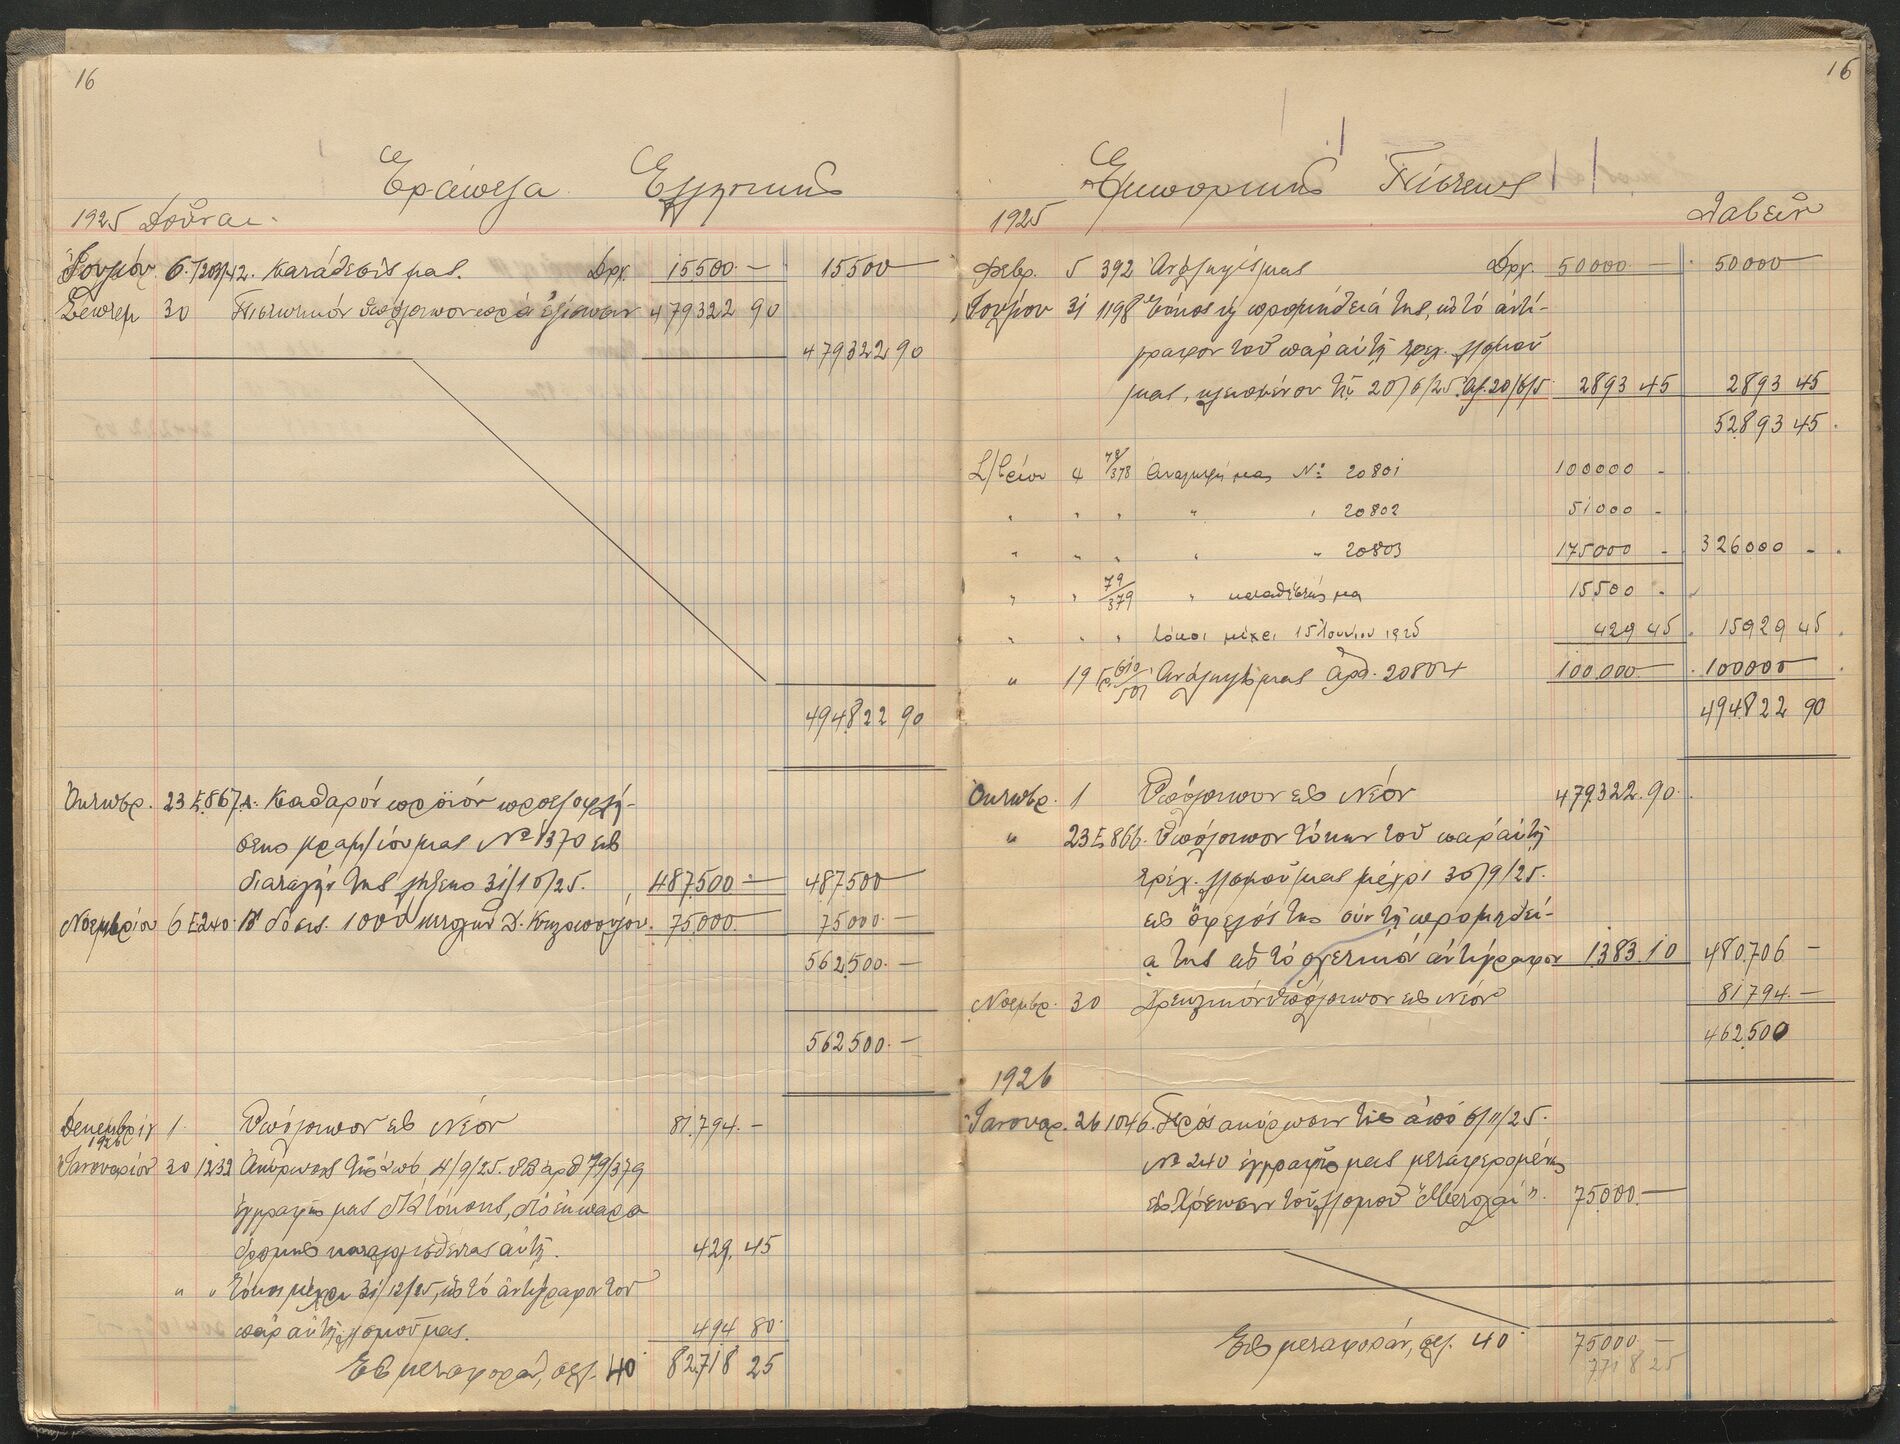 16
Τράπεζα Ελληνικής
1925 Δοῦναι
6. 7203/42. κατάθεσίς μας. Δρχ. 15500.— 15500—
Σεπτεμ 30 Πιστωτικόν ὑπόλοιπον πρό ἐξίσωσιν 479322 90
479322 90
494822 90
Ὀκτωβρ. 23 Ε867 Καθαρόν προϊόν προεξοφλή-
σεως γραμ/ίου μας Nº 1370 εἰς
διαταγήν της λήξεως 31/10/25. 487.500— 487500—
Νοεμβρίου 6 Ε240 δόσις. 1000 75.000.— 75000.—
562.500.—
562500.—
Δεκεμβρίου 1 Ὑπόλοιπον εἰς Νέον 81.794.—
1926
Ἰανουαρίου 30 1232 Ἀκύρωσις τῆς 4/9/25. 79/379
ἐγγραφῆς μας
429.45
" " Τόκοι μέχρι 31/12/25, ὡς τό ἀντίγραφον τοῦ
παρ' αὐτῇ λ/σμοῦ μας. 494 80
Εἰς μεταφοράν, σελ. 40 82718 25
16
Εμπορικής Πίστεως
1925 Λαβεῖν
Φεβρ. 5 392 Ἀνάληψίς μας Δρχ. 50000— 50000—
Ἰουλίου 31 1198 Τόκος προμήθειά της, ὡς τό ἀντί-
γραφον τοῦ παρ' αὐτῇ τρεχ. λ/σμοῦ
μας, κλεισμένον τῇ 20/6/25. 20/6/5 2893 45 2893 45
52893 45
Σ/βρίου 4 78/378 Ἀνάληψή μας Nº 20801 100000 -
" " " " " 20802 51000 -
" " " " " 20803 175000 - 326000 -
" " 79/379 " καταθέσεώς μα 15500 -
" " " τόκοι μέχρι 15 Ἰουνίου 1925 429 45 15929 45
" 19 501 Ἀνάληψίς μας ἀρθ. 20804 100.000— 100000—
494822 90
Ὀκτωβρ. 1 Ὑπόλοιπον εἰς Νέον 479.322.90
" 23 Ε866. Ὑπόλοιπον τόκων τοῦ παρ' αὐτῇ
τρεχ. λ/σμοῦ μας μέχρι 30/9/25.
εἰς ὄφελός της σύν τῇ προμηθεί-
ᾳ της ὡς τό σχετικόν ἀντίγραφον 1383.10 480.706 —
Νοεμβρ. 30 Χρεωστικόν ὑπόλοιπον εἰς Νέον 81794.—
462.500
1926
Ἰανουαρ. 26 1046. Πρός ἀκύρωσιν τῆς ἀπό 6/11/25.
Nº 240 ἐγγραφῆς μας μεταφερομένης
εἰς χρέωσιν τοῦ λ/σμοῦ 75.000.—
Εἰς μεταφοράν, σελ. 40 75000 —
771 8 25